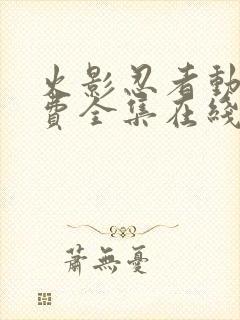 火影忍者動
費全集在綫
蕭無憂